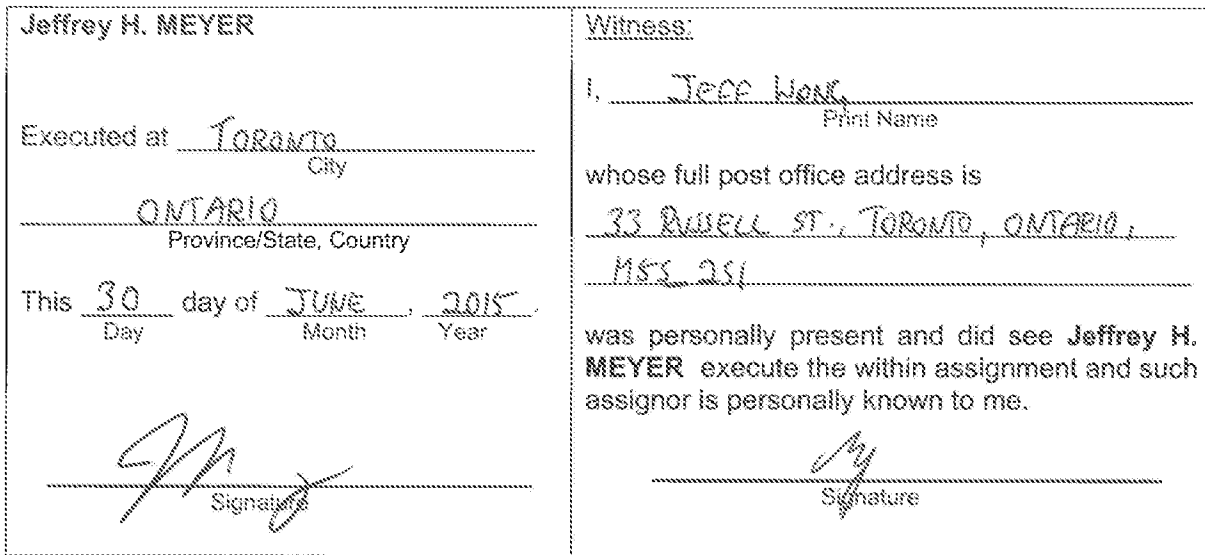 Jeffrey H. MEYER
Executed at TORONTO
City
ONTARIO
Province/State, Country
This 30 day of JUNE, 2015.
Day Month Year
Signature
Witness:
I, JEFF WONG
Print Name
whose full post office address is
33 RUSSELL ST., TORONTO, ONTARIO,
M5S 2S1
was personally present and did see Jeffrey H.
MEYER execute the within assignment and such
assignor is personally known to me.
Signature